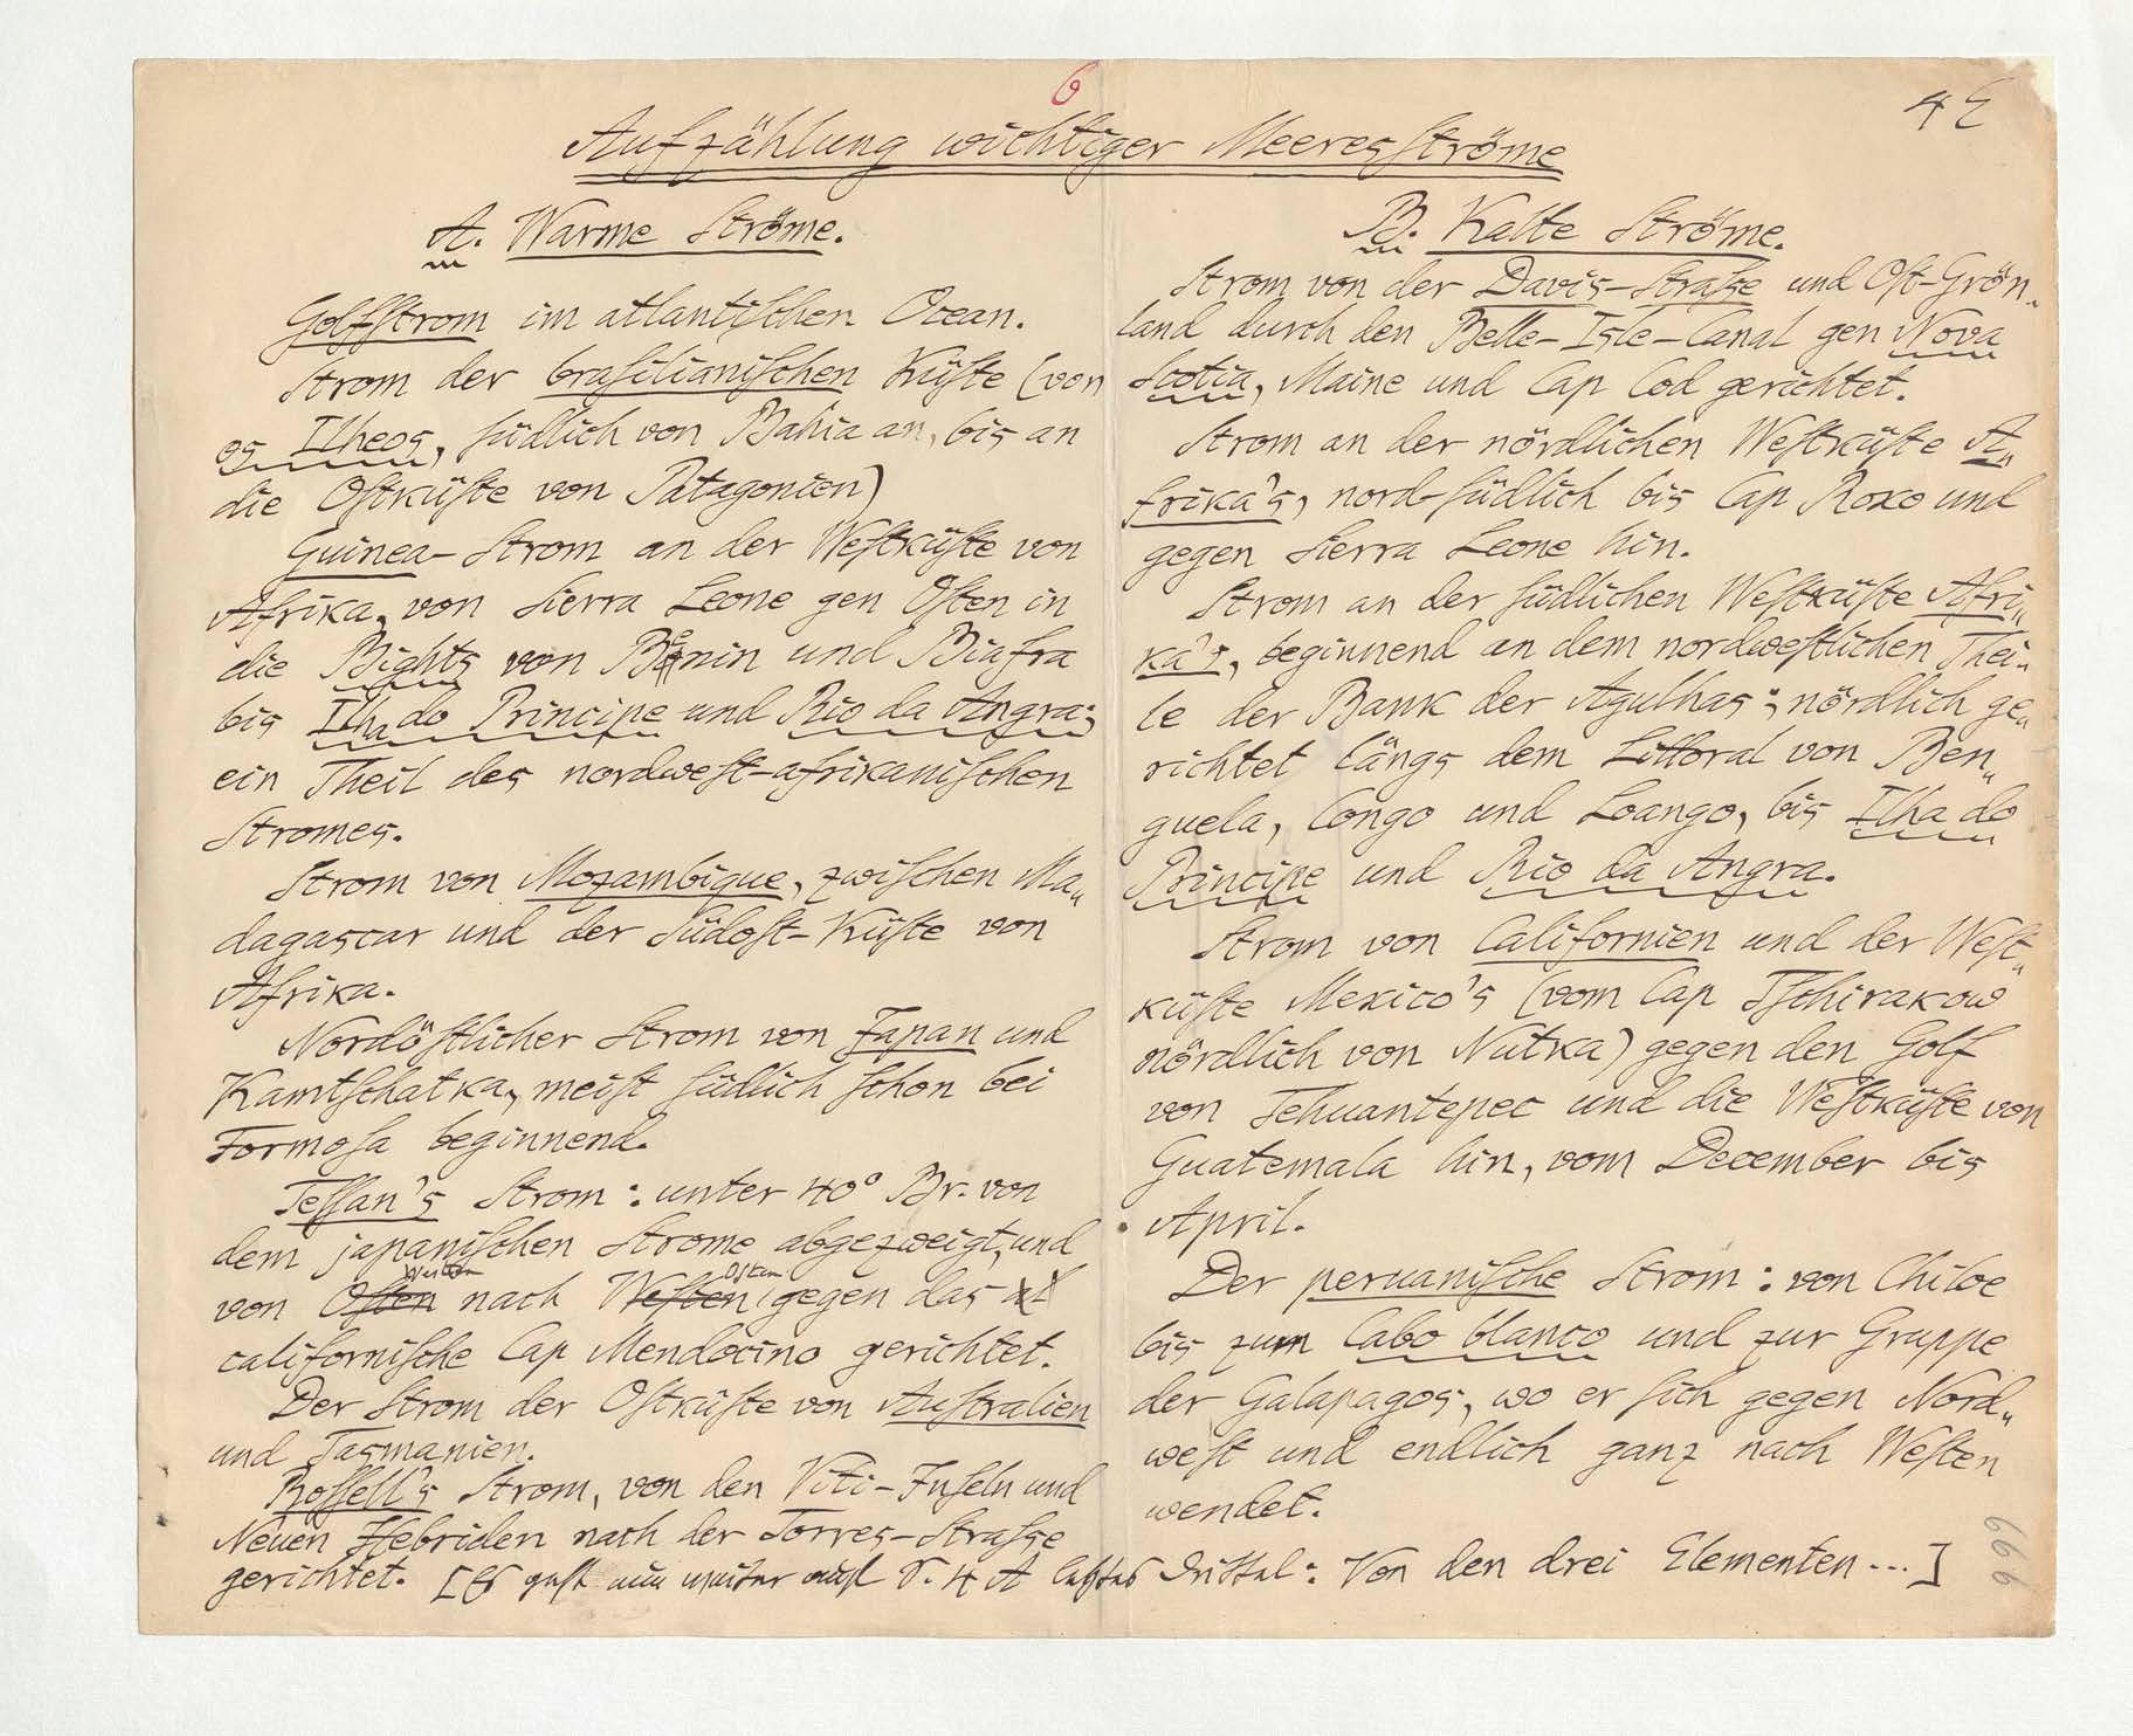 6
4 E
Aufzählung wichtiger Meeresströme
A. Warme Ströme.
Golfstrom im atlantischen Ocean.
Strom der brasilianischen Küste (von
os Ilheos, südlich von Bahia an, bis an
die Ostküste von Patagonien)
Guinea-Strom an der Westküste von
Afrika, von Sierra Leone gen Osten in
die Bights von Benin und Biafra
bis Ilha do Principe und Rio da Angra;
ein Theil des nordwest-afrikanischen
Stromes.
Strom von Mozambique, zwischen Ma„
dagascar und der Südost-Küste von
Afrika.
Nordöstlicher Strom von Japan und
Kamtschatka, meist südlich schon bei
Formosa beginnend.
Tessan's Strom: unter 40° Br. von
dem japanischen Strome abgezweigt, und
von Osten Westen nach Westen Osten gegen das
californische Cap Mendocino gerichtet.
Der Strom der Ostküste von Australien
und Tasmanien.
Rossell's Strom, von den Viti-Inseln und
Neuen Hebriden nach der Torres-Strasse
gerichtet. [Es geht nun weiter auf S. 4 A letztes Drittel: Von den drei Elementen...]
B. Kalte Ströme.
Strom von der Davis-Strasse und Ost-Grön„
land durch den Belle-Isle-Canal gen Nova
Scotia, Maine und Cap Cod gerichtet.
Strom an der nördlichen Westküste A„
frika's, nord-südlich bis Cap Roxo und
gegen Sierra Leone hin.
Strom an der südlichen Westküste Afri„
ka's, beginnend an dem nordwestlichen Thei„
le der Bank der Agulhas; nördlich ge„
richtet längs dem Littoral von Ben„
guela, Congo und Loango, bis Ilha do
Principe und Rio da Angra.
Strom von Californien und der West„
küste Mexico's (vom Cap Tschirakow
nördlich von Nutka) gegen den Golf
von Tehuantepec und die Westküste von
Guatemala hin, vom December bis
April.
Der peruanische Strom: von Chiloe
bis zum Cabo blanco und zur Gruppe
der Galapagos, wo er sich gegen Nord„
west und endlich ganz nach Westen
wendet.
666